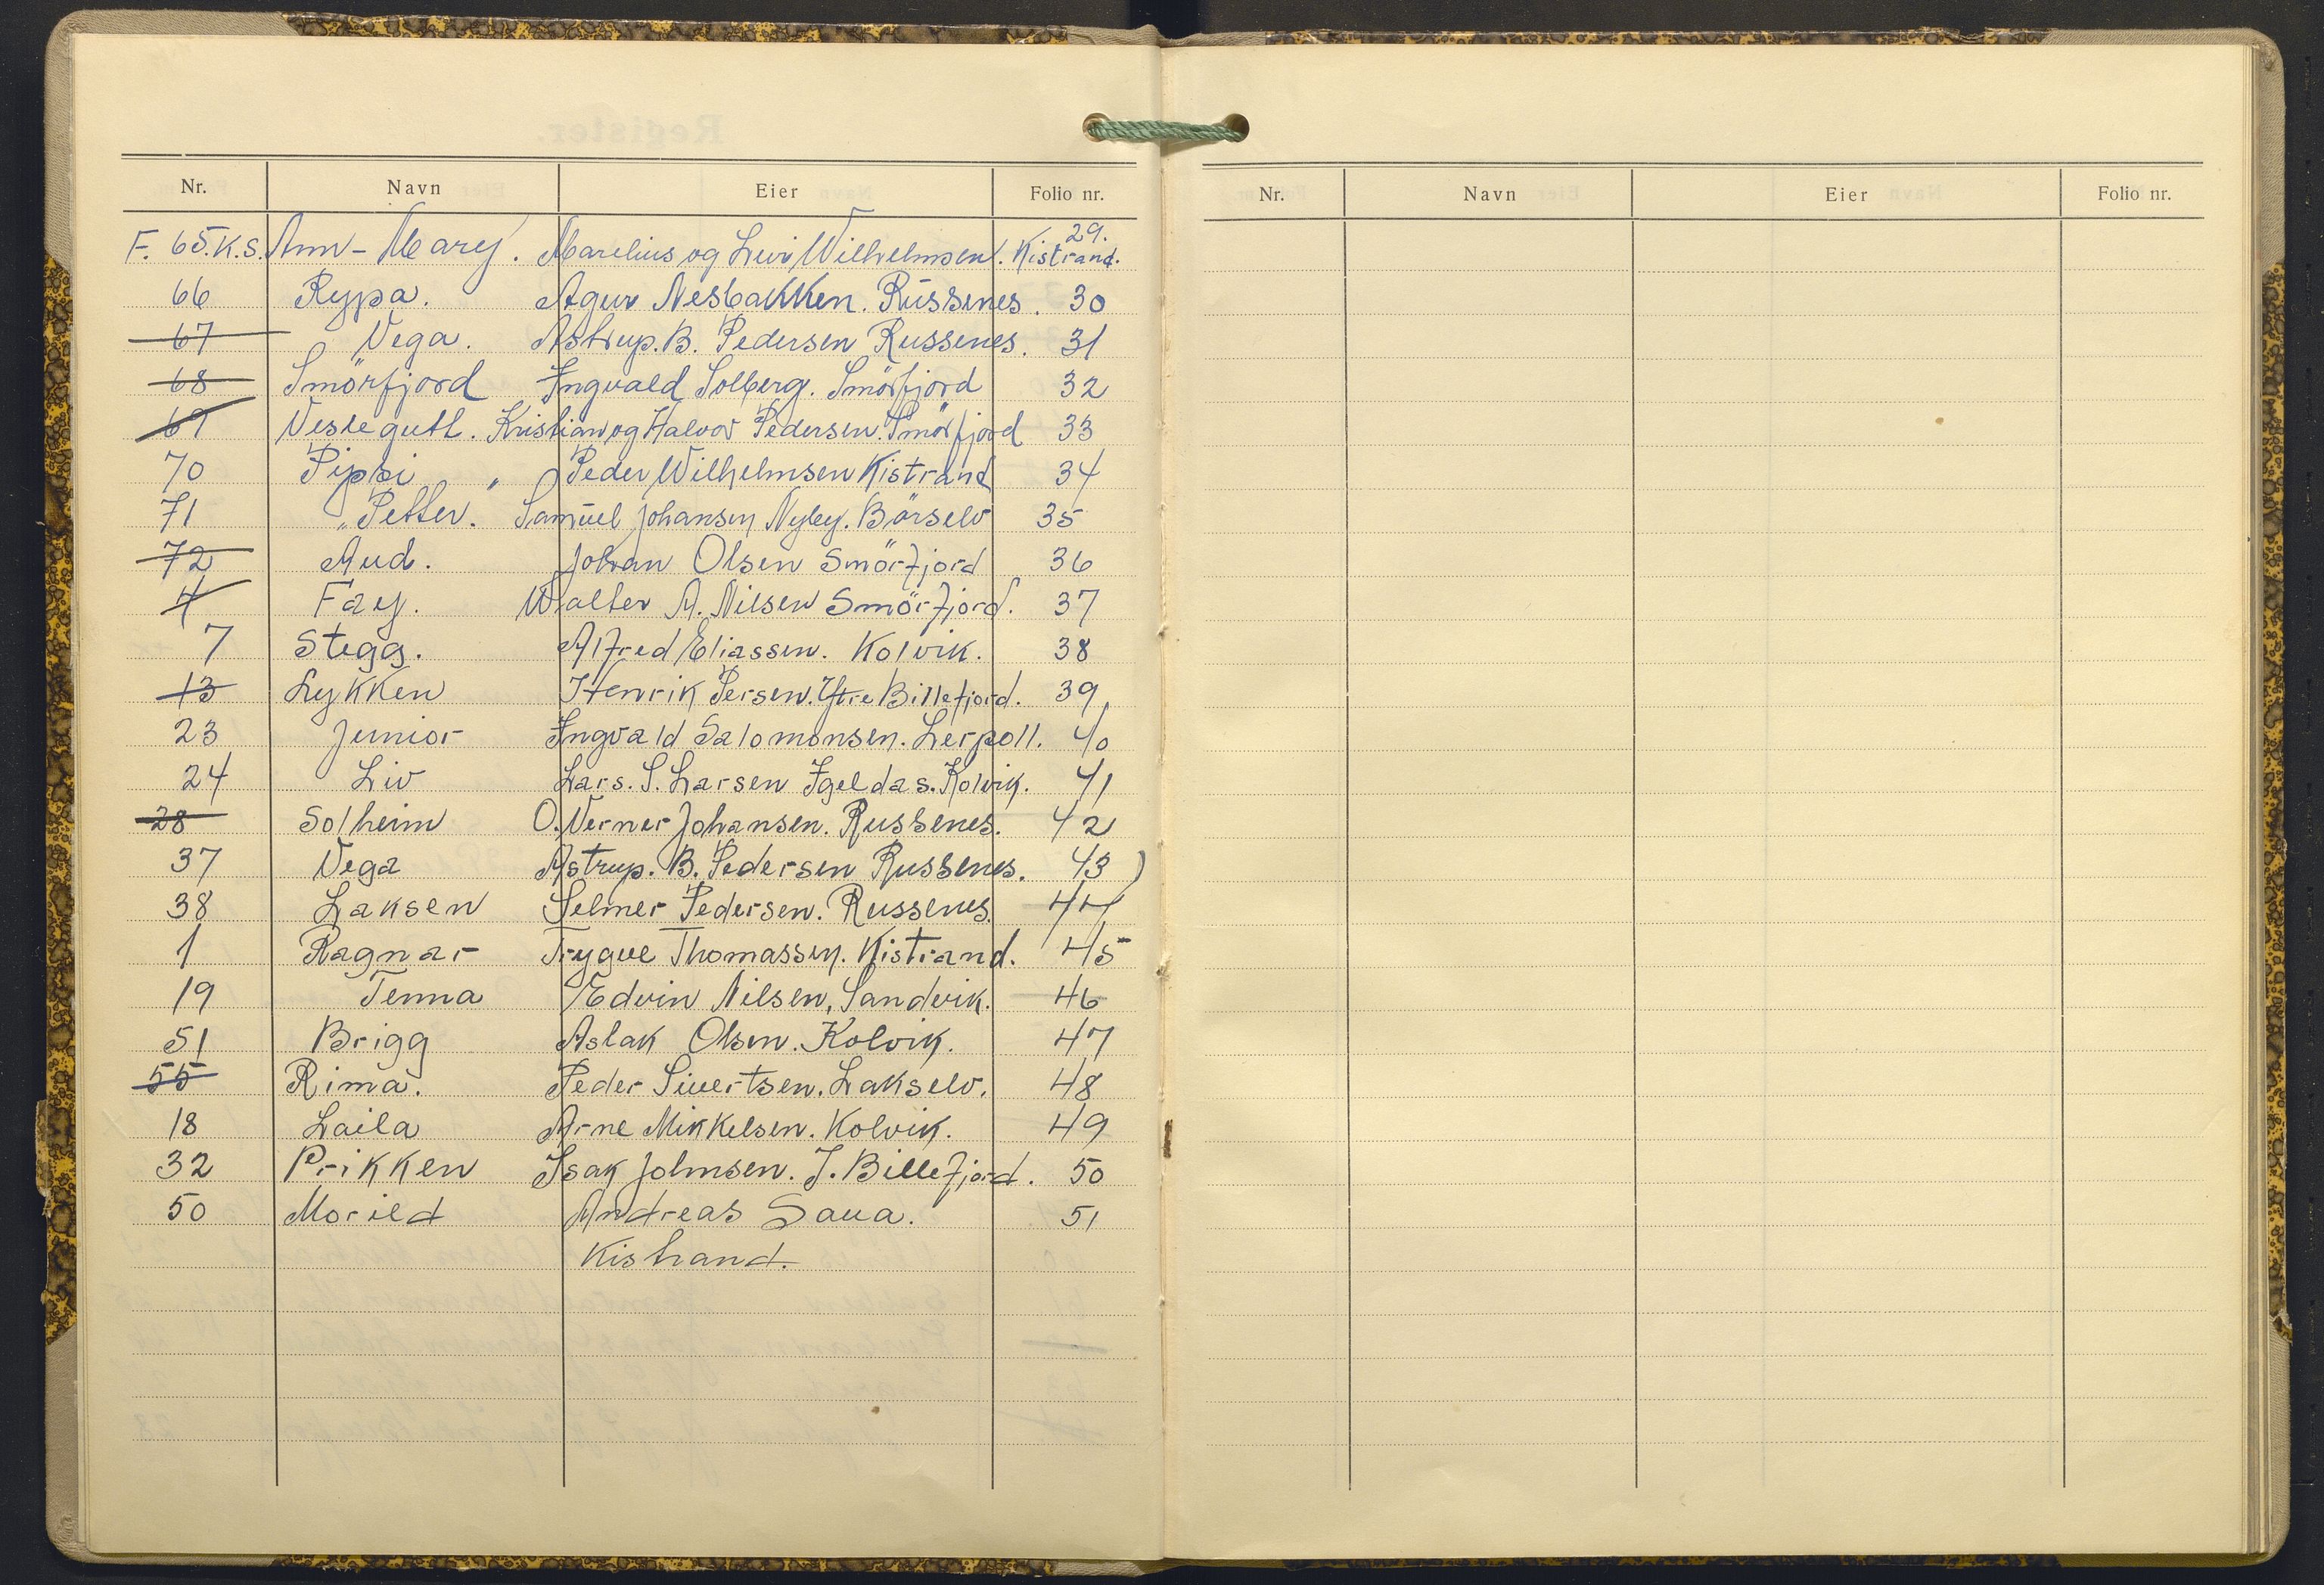 Nr. Navn Eier Folio nr.
F. 65. K.S. Ann-Mary. Marelius og Levi Wilhelmsen. Kistrand. 29.
66 Rypa. Agur Nesbakken. Russenes. 30
67 Vega. Astrup. B. Pedersen Russenes. 31
68 Smörfjord Ingvald Solberg. Smörfjord 32
69 Veslegutt. Kristian og Halvor Pedersen. Smörfjord 33
70 Pippi " Peder Wilhelmsen Kistrand 34
71 " Petter. Samuel Johansen Nyby. Börselv 35
72 Aud. Johan Olsen Smörfjord 36
4 Fay. Walter A. Nilsen Smörfjord. 37
7 Stegg. Alfred Eliassen. Kolvik. 38
13 Lykken Henrik Persen. Ytre Billefjord. 39
23 Junior Ingvald Salomonsen. Lerpoll. 40
24 Liv Lars. S. Larsen Igeldas. Kolvik. 41
28 Solheim O. Verner Johansen. Russenes. 42
37 Vega Astrup. B. Pedersen Russenes. 43 )
38 Laksen Selmer Pedersen. Russenes. 44
1 Ragnar Trygve Thomassen. Kistrand. 45
19 Tenna Edvin Nilsen, Sandvik. 46
51 Brigg Aslak Olsen. Kolvik. 47
55 Rima. Peder Sivertsen. Lakselv. 48
18 Laila Arne Mikkelsen. Kolvik. 49
32 Prikken Isak Johnsen. I. Billefjord. 50
50 Morild Andreas Saua. 51
Kistrand.
Nr. Navn Eier Folio nr.